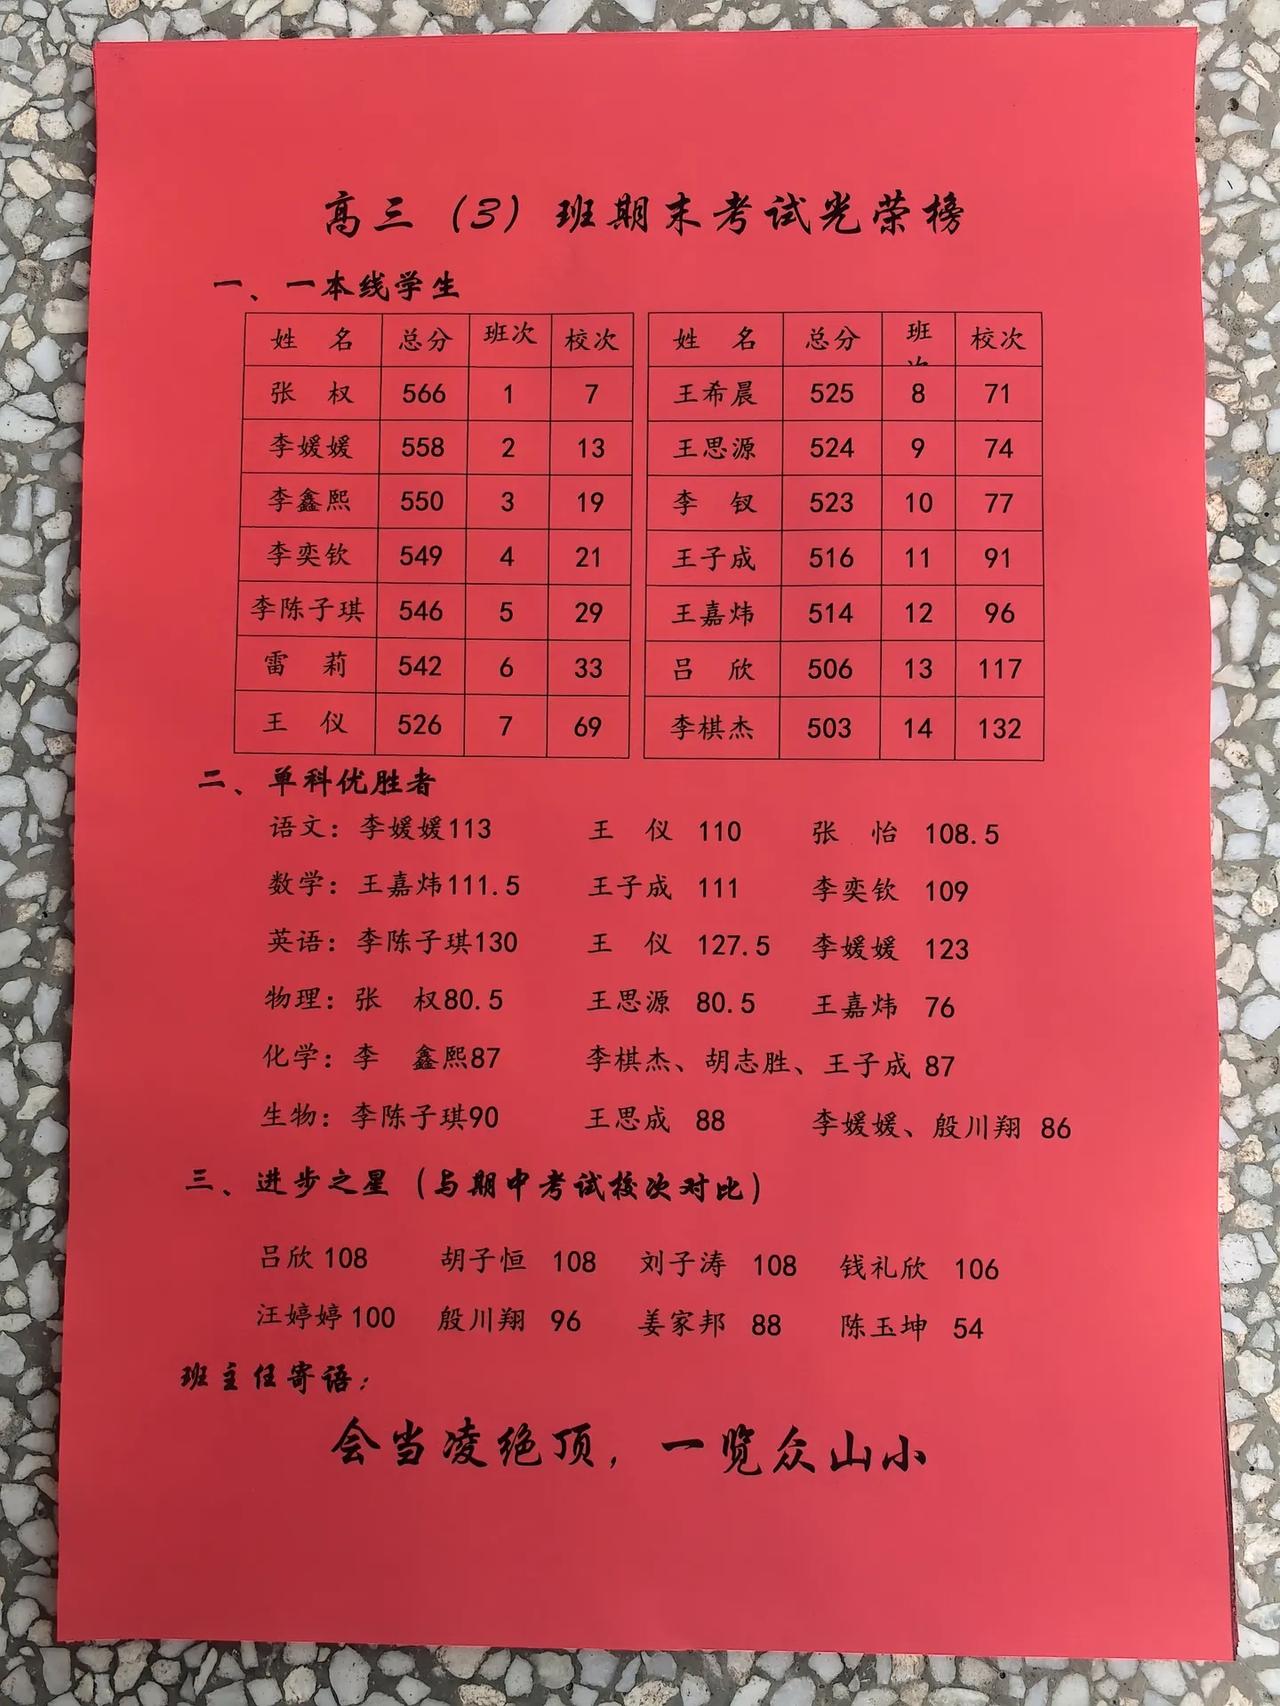 高三（3）班期末考试光荣榜
一、一本线学生
姓 名 总分 班次 校次 姓 名 总分 班次 校次
张 权 566 1 7 王希晨 525 8 71
李媛媛 558 2 13 王思源 524 9 74
李鑫熙 550 3 19 李 钗 523 10 77
李奕钦 549 4 21 王子成 516 11 91
李陈子琪 546 5 29 王嘉炜 514 12 96
雷 莉 542 6 33 吕 欣 506 13 117
王 仪 526 7 69 李棋杰 503 14 132
二、单科优胜者
语文：李媛媛113 王 仪 110 张 怡 108.5
数学：王嘉炜111.5 王子成 111 李奕钦 109
英语：李陈子琪130 王 仪 127.5 李媛媛 123
物理：张 权80.5 王思源 80.5 王嘉炜 76
化学：李 鑫熙87 李棋杰、胡志胜、王子成 87
生物：李陈子琪90 王思成 88 李媛媛、殷川翔 86
三、进步之星（与期中考试校次对比）
吕欣 108 胡子恒 108 刘子涛 108 钱礼欣 106
汪婷婷 100 殷川翔 96 姜家邦 88 陈玉坤 54
班主任寄语：
会当凌绝顶，一览众山小